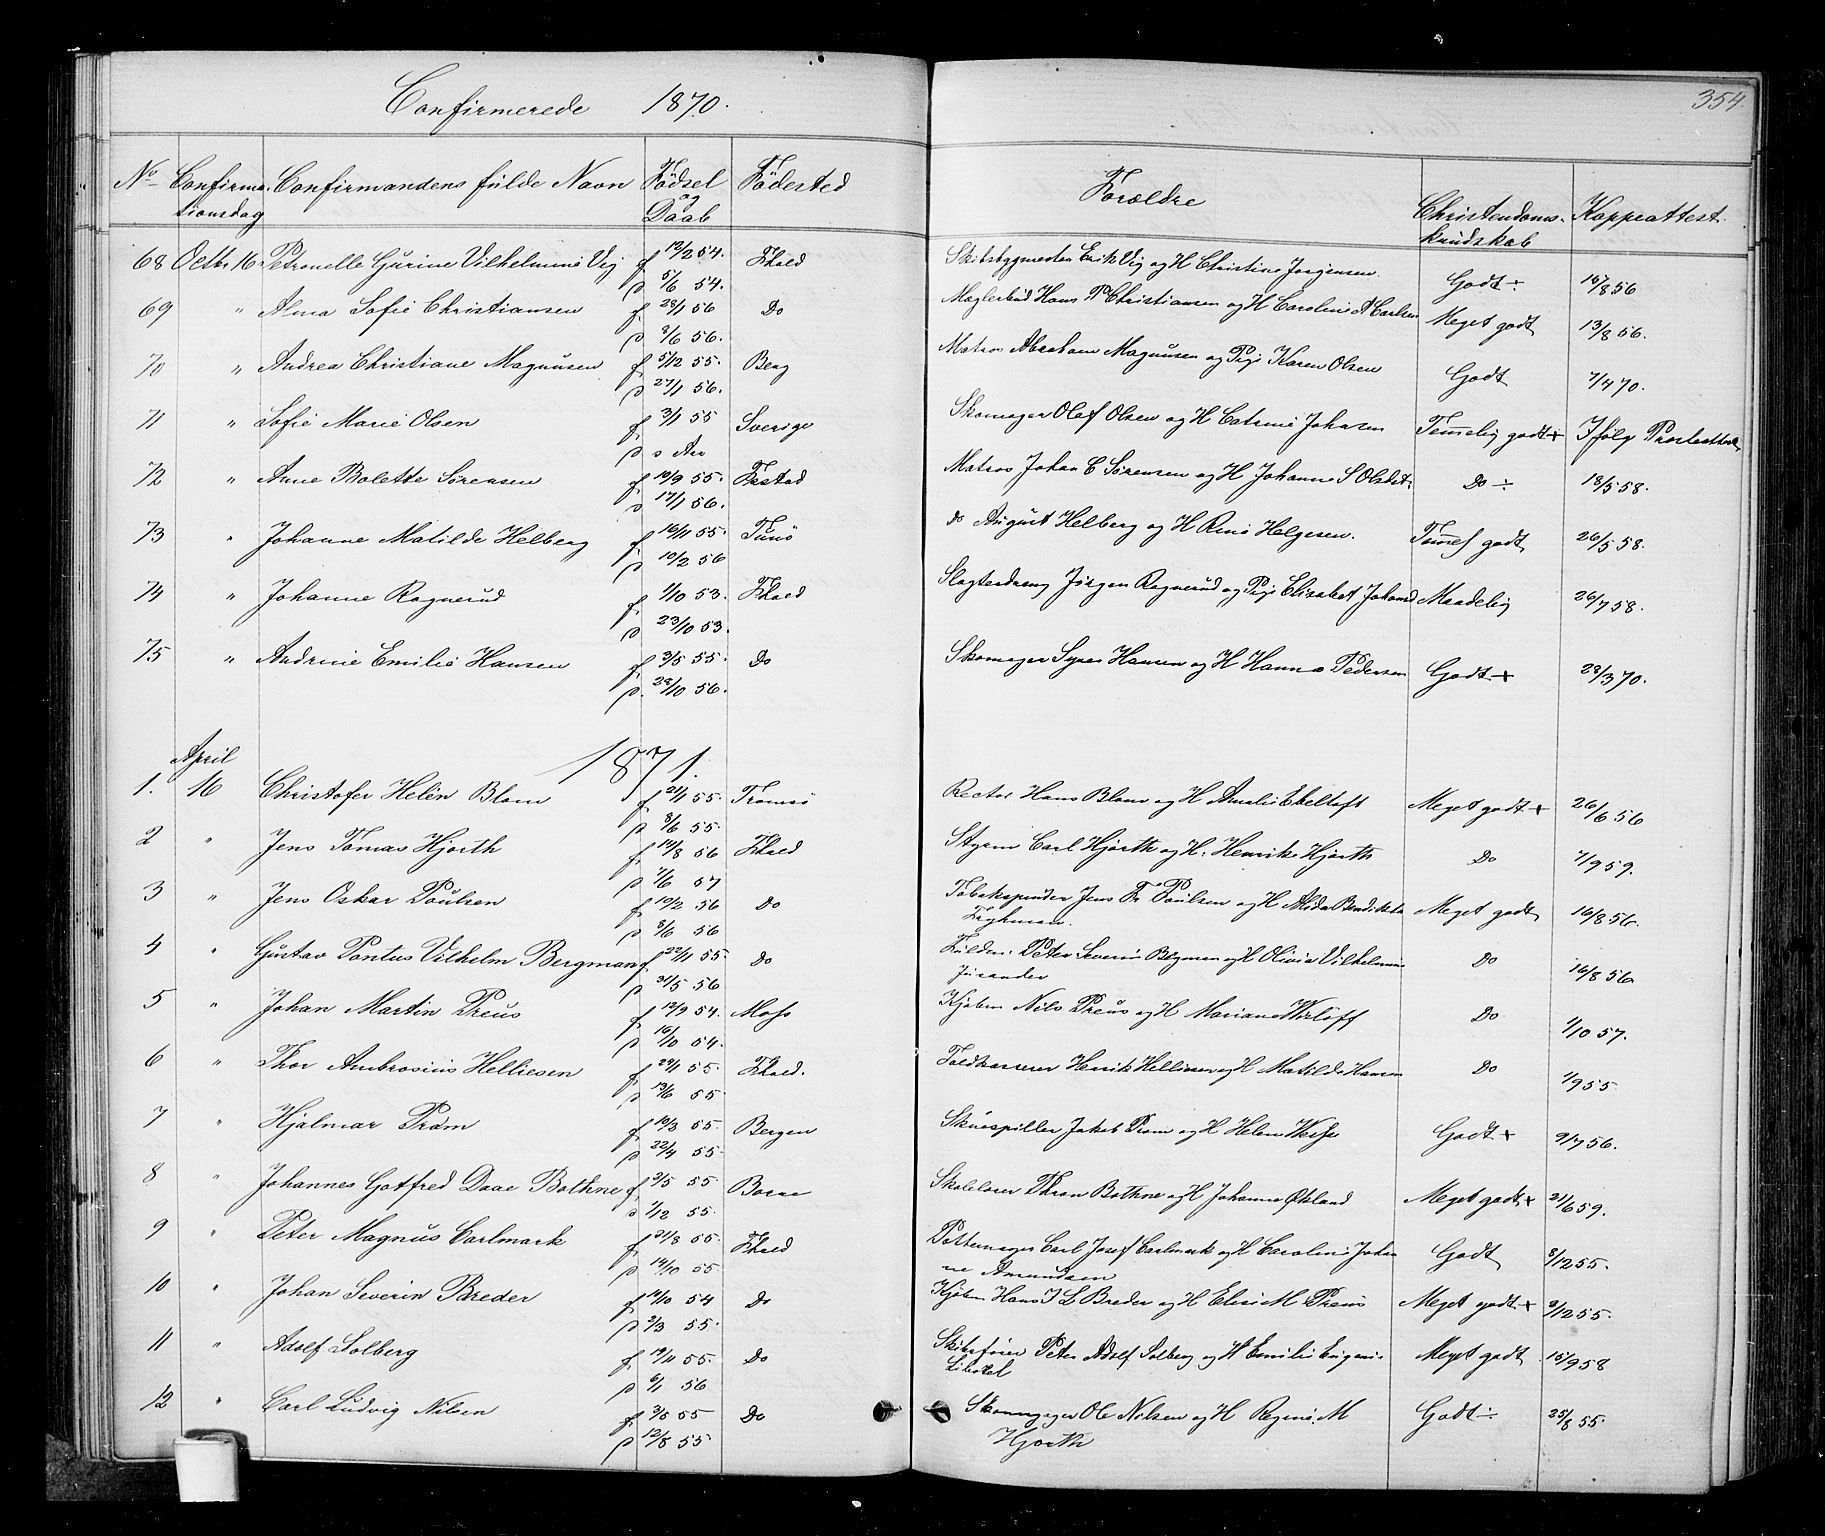 Confirmerede 1870.
354.
No Confirma- Confirmandens fulde Navn Fødsel Fødested Forældre Christendoms- Koppeattest
tionsdag og Daab kundskab
68 Octbr 16 Petronelle Gurine Vilhelmine Vig f 12/2 54. Fhald Skibsbygmester Erik Vig og H Christine Jørgensen. Godt ÷ 15/8 56
d 5/6 54.
69 " Alma Sofie Christiansen f 28/1 56 Do Møglerbud Hans P Christiansen og H Caroline A Carlsen Meget godt 13/8 56.
d 8/6 56.
70 " Andrea Christiane Magnusen f 5/12 55. Berg Matros Abraham Magnusen og Pige Karen Olsen Godt 7/4 70.
d 27/1 56.
71 " Sofie Marie Olsen f 3/1 55 Sverige Skomager Olaf Olsen og H Catrine Johnsen Temmelig godt + Ifølg Presteattest
d s Aar
72 " Anne Bolette Sørensen f 10/9 55. Fkstad Matros Johan C Sørensen og H Johanne S Olsdt. Do ÷ 18/5 58.
d 17/1 56.
73 " Johanne Matilde Helberg f 16/11 55. Tunø do August Helberg og H Rine Helgesen. Temel godt 26/5 58.
d 10/2 56
74 " Johanne Rognerud f 1/10 53. Fhald Slagterdreng Jørgen Rognerud og Pige Elisabet Johansd Maadelig 26/7 58.
d 23/10 53.
75 " Andrine Emilie Hansen f 3/5 55. Do Skomager Syver Hansen og H Hanna Pedersen Godt + 28/3 70.
d. 28/10 56.
1871.
April
1. 16 Christofer Helén Blom f 21/1 55. Tromsø Rector Hans Blom og H Amalie Ebeltoft Meget godt + 26/6 56
d 8/6 55.
2 " Jens Tomas Hjorth f 14/8 56 Fhald Styrm Carl Hjorth og H. Henrike Hjorth Do 7/9 59.
d 7/6 57
3 " Jens Oskar Poulsen f 10/2 56 Do Tobakspinder Jens Fr Poulsen og H Alida Bendikta Meget godt 16/8 56.
d 8/6 56
4 " Gustav Pontus Vilhelm Bergman f 22/1 55. Do Peter Severin Bergman og H Olivia Vilhelmine Do 16/8 56
d 31/5 56
5 " Johan Martin Preus f 12/9 54. Moss Kjøbm Nils Preus og H Mariane Wirløff Do 1/10 57.
d 16/10 54.
6 " Thor Ambrosius Helliesen f 29/1 55. Fhald. Toldkasserer Henrik Helliesen og H Matilde Hansen Do 1/9 55
d 13/6 55
7 " Hjalmar Prom f 10/3 55. Bergen Skuespiller Jakob Prom og H Helene Weise Godt + 9/7 56.
d 22/4 55.
8 " Johannes Gotfred Daae Bothne f 2/5 55 Borne Skolelærer Thron Bothne og H Johanne Økland Meget godt + 21/6 59.
d 1/12 55.
9 " Peter Magnus Carlmark f 31/8 55 Fhald Pottemager Carl Josef Carlmark og H Caroline Johan Godt 8/12 55.
d 14/10 55 ne Amundsen
10 " Johan Severin Breder f 14/10 54 Do Kjøbm Hans I L Breder og H Elise M Preus Meget godt + 9/12 55.
d 2/3 55.
11 " Adolf Solberg f 19/11 55. Do Skibsfører Peter Adolf Solberg og H Emilie Eugenie Meget godt 15/9 58
d 6/1 56
12 " Carl Ludvig Nilsen f 3/5 55 Do Skomager Ole Nilsen og H Regine M Godt ÷ 25/8 55.
d 12/8 55 Hjorth